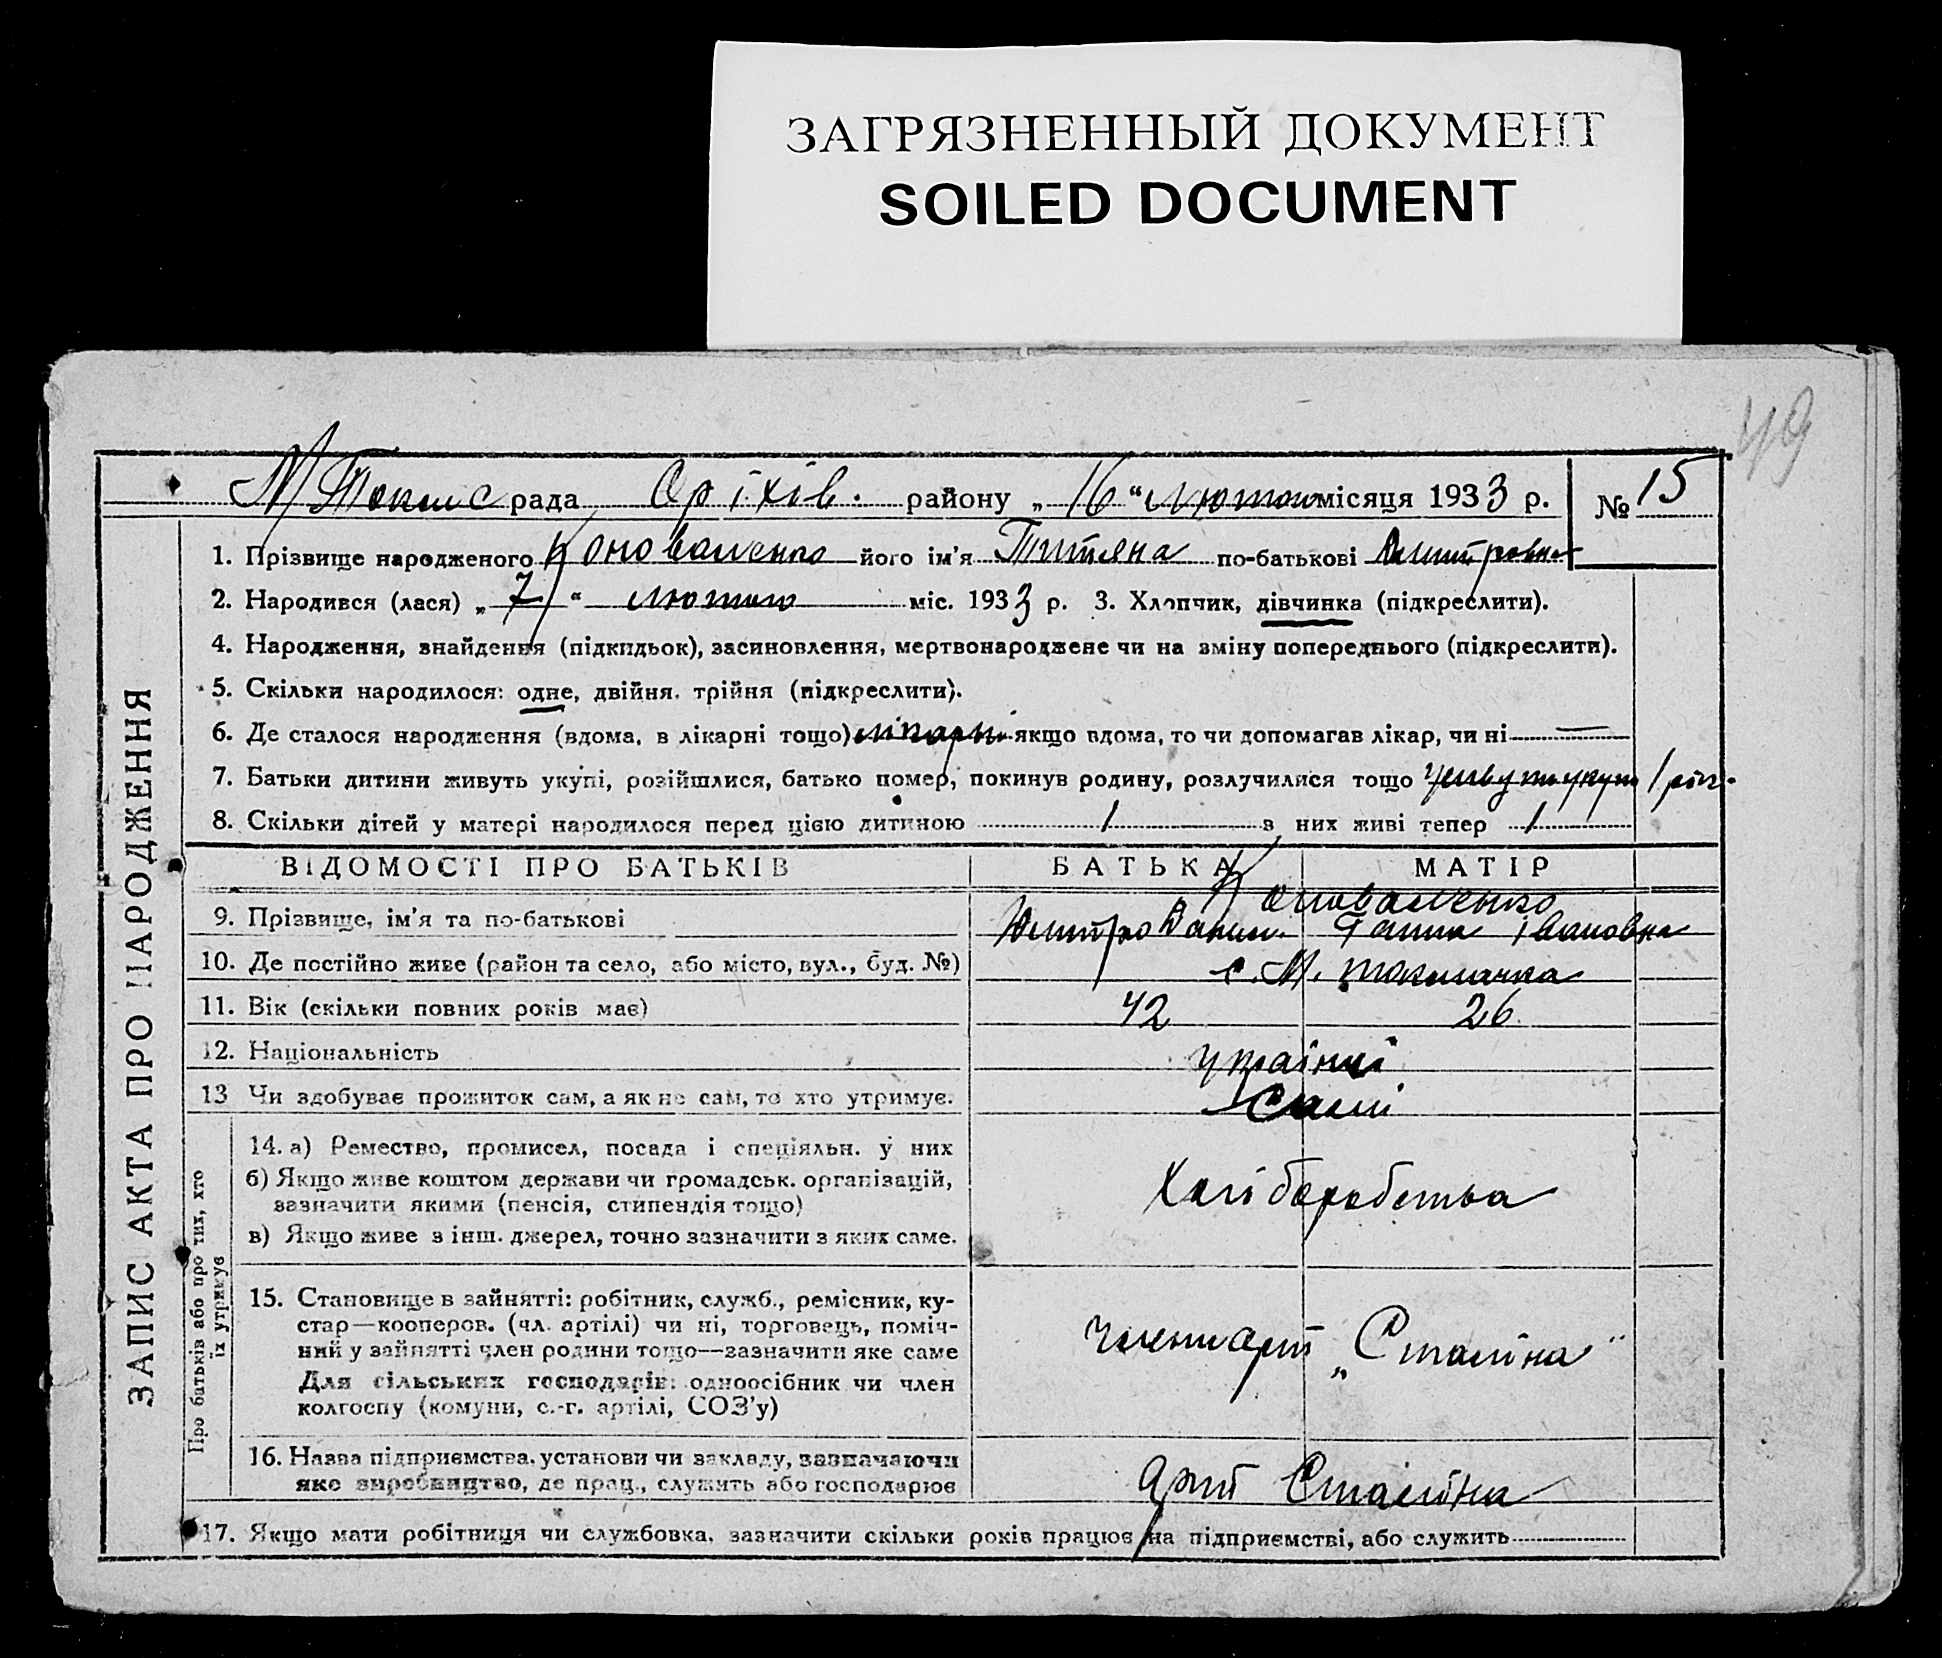 ЗАГРЯЗНЕННЫЙ ДОКУМЕНТ
SOILED DOCUMENT
49
М Токмс рада Оріхів. району „16“ лютого місяця 1933 р. № 15
1. Прізвище народженого Коноваленко його ім'я Титяна по-батькові Дмитровна
2. Народився (лася) „7“ лютого міс. 1933 р. 3. Хлопчик, дівчинка (підкреслити).
4. Народження, знайдення (підкидьок), засиновлення, мертвонароджене чи на зміну попереднього (підкреслити).
5. Скільки народилося: одне, двійня, трійня (підкреслити).
6. Де сталося народження (вдома, в лікарні тощо) лікарні якщо вдома, то чи допомагав лікар, чи ні —
7. Батьки дитини живуть укупі, розійшлися, батько помер, покинув родину, розлучилися тощо живуть укупі 1 рік.
8. Скільки дітей у матері народилося перед цією дитиною 1 з них живі тепер 1
ЗАПИС АКТА ПРО НАРОДЖЕННЯ
ВІДОМОСТІ ПРО БАТЬКІВ БАТЬКА МАТІР
Коноваленко
9. Прізвище, ім'я та по-батькові Дмитро Данил. Ганна Івановна
10. Де постійно живе (район та село, або місто, вул., буд. №) с. М. Токмачка
11. Вік (скільки повних років має) 42 26
12. Національність українці
13 Чи здобуває прожиток сам, а як не сам, то хто утримує. Самі
Про батьків або про тих, хто
їх утримує
14. а) Ремество, промисел, посада і спеціяльн. у них
б) Якщо живе коштом держави чи громадськ. організацій,
зазначити якими (пенсія, стипендія тощо)
Хліборобства
в) Якщо живе з інш. джерел, точно зазначити з яких саме.
15. Становище в зайнятті: робітник, служб., ремісник, ку-
стар—кооперов. (чл. артілі) чи ні, торговець, поміч-
ний у зайнятті член родини тощо—зазначити яке саме
члени арт „Сталіна“
Для сільських господарів: одноосібник чи член
колгоспу (комуни, с.-г. артілі, СОЗ'у)
16. Назва підприємства, установи чи закладу, зазначаючи
яке виробництво, де прац., служить або господарює
Арт Сталіна
17. Якщо мати робітниця чи службовка, зазначити скільки років працює на підприємстві, або служить